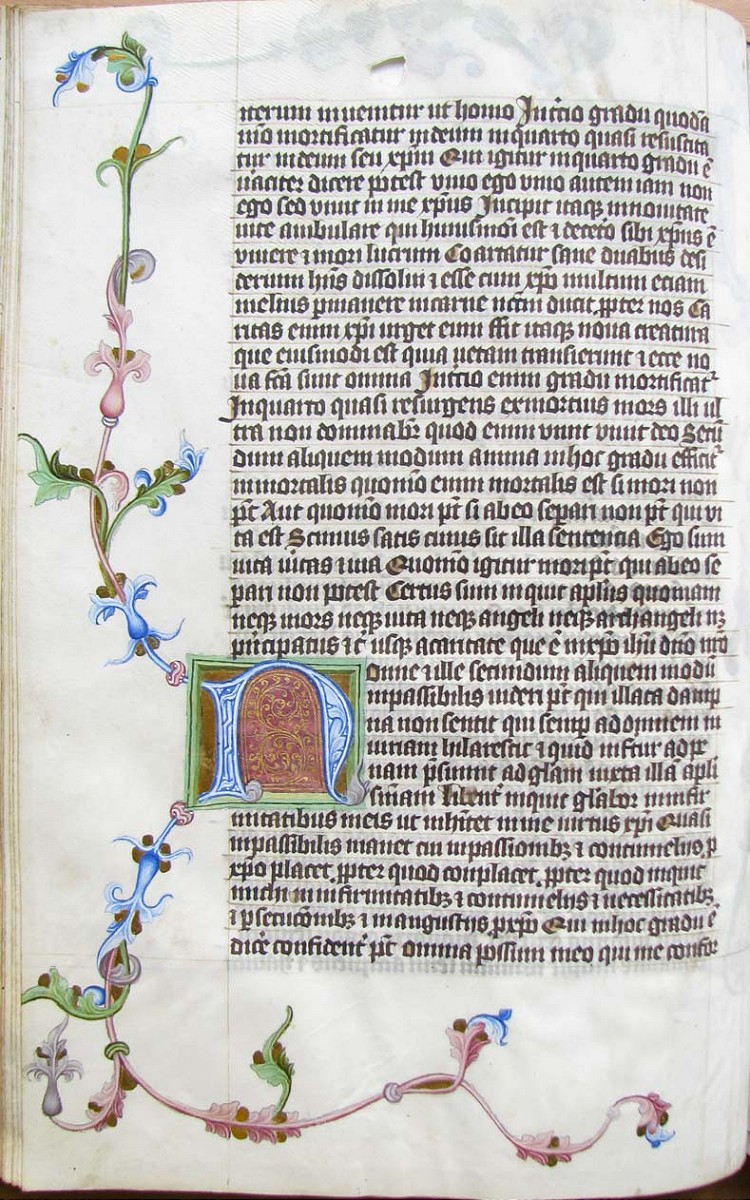 iterum inuenitur ut homo In t̄cio gradu quodā
mō mortificatur in deum in quarto quasi resuscita
tur in deum seu xp̄m Qui igitur in quarto gradu ē
ueraciter dicere potest viuo ego viuo autem iam non
ego sed viuit in me xp̄us Incipit itaq̃ in nouitate
uite ambulare qui huiusmōi est ⁊ deceto sibi xp̄us ē
viuere ⁊ mori lucrum Coartatur sane duabus desi
derium hn̄s dissolui ⁊ esse cum xp̄o multum etiam
melius permanere in carne nc̄m ducit ꝓpter nos Ca
ritas enim xp̄i urget eum ffit itaq̃ noua creatura
que eiusmodi est quia uetam transierunt ⁊ ecce no
ua fc̄a sunt omnia In t̄cio enim gradu mortificat᷑
In quarto quasi resurgens ex mortuis mors illi ul
tra non dominab̄r quod enim viuit viuit deo Secū
dum aliquem modum anima in hoc gradu efficit᷑
inmortalis quomō enim mortalis est si mori non
pt̄ Aut quomō mori pt̄ si ab eo separi non pt̄ qui vi
ta est Scimus satis cuius sit illa sentencia Ego sum
uia uitas ⁊ uita Quomō igitur mori pt̄ qui ab eo se
pari non potest Certus sum inquit apl̄us quoniam
neq̃ mors neq̃ uita neq̃ angeli neq̃ archangeli nꝫ
principatus ⁊c̄ usq̃ a caritate que ē in xp̄o ih̄u dn̄o nr̄o
Nonne ⁊ ille secundum aliquem modū
inpassibilis uideri pt̄ qui illata damp
na non sentit qui semp ad omnem in
iuriam hilarescit ⁊ quid infertur ad pe
nam p̄sumit ad gl̄am iuxta illā apl̄i
sn̄iam libent᷑ inquit gl̄abor in infir
mitatibus meis ut inh̄itet in me uirtus xp̄i Quasi
inpassibilis manet cui in passionibꝫ ⁊ contumeliis ꝓ
xp̄o placet ꝓpter quod conplacet ꝓpter quod inquit
michi in infirmitatibꝫ ⁊ contumeliis ⁊ necessitatibꝫ
⁊ persecucōnibꝫ ⁊ in angustiis ꝓ xp̄o Qui in hoc gradu ē
dic̄e confident᷑ pt̄ omnia possum in eo qui me confor